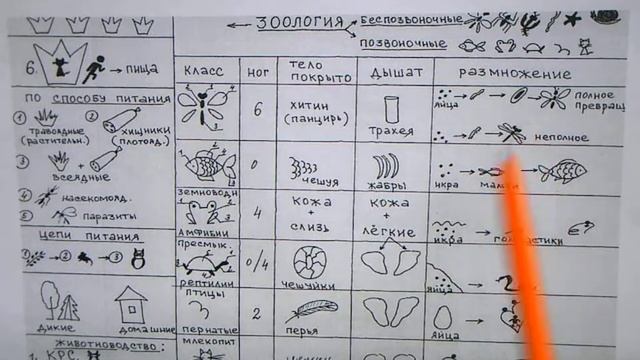 ← ЗООЛОГИЯ
БЕСПОЗВОНОЧНЫЕ
ПОЗВОНОЧНЫЕ
6. → ПИЩА
ПО СПОСОБУ ПИТАНИЯ
① ТРАВОЯДНЫЕ (РАСТИТЕЛЬН.)
② ХИЩНИКИ (ПЛОТОЯД.)
③ + ВСЕЯДНЫЕ
④ НАСЕКОМОЯД.
⑤ ПАРАЗИТЫ
ЦЕПИ ПИТАНИЯ
① → ② → ③
ДИКИЕ ДОМАШНИЕ
ЖИВОТНОВОДСТВО:
1. КРС.
КЛАСС НОГ ТЕЛО ПОКРЫТО ДЫШАТ РАЗМНОЖЕНИЕ
6 ХИТИН (ПАНЦИРЬ) ТРАХЕЯ
ЯЙЦА ПОЛНОЕ ПРЕВРАЩ
НЕПОЛНОЕ
0 ЧЕШУЯ ЖАБРЫ ИКРА
ЗЕМНОВОДН
АМФИБИИ 4 КОЖА + СЛИЗЬ КОЖА + ЛЁГКИЕ ИКРА
ПРЕСМЫК.
РЕПТИЛИИ 0/4 ЧЕШУЙКИ ЯЙЦА
ПТИЦЫ
ПЕРНАТЫЕ 2 ПЕРЬЯ ЯЙЦА
МЛЕКОПИТ